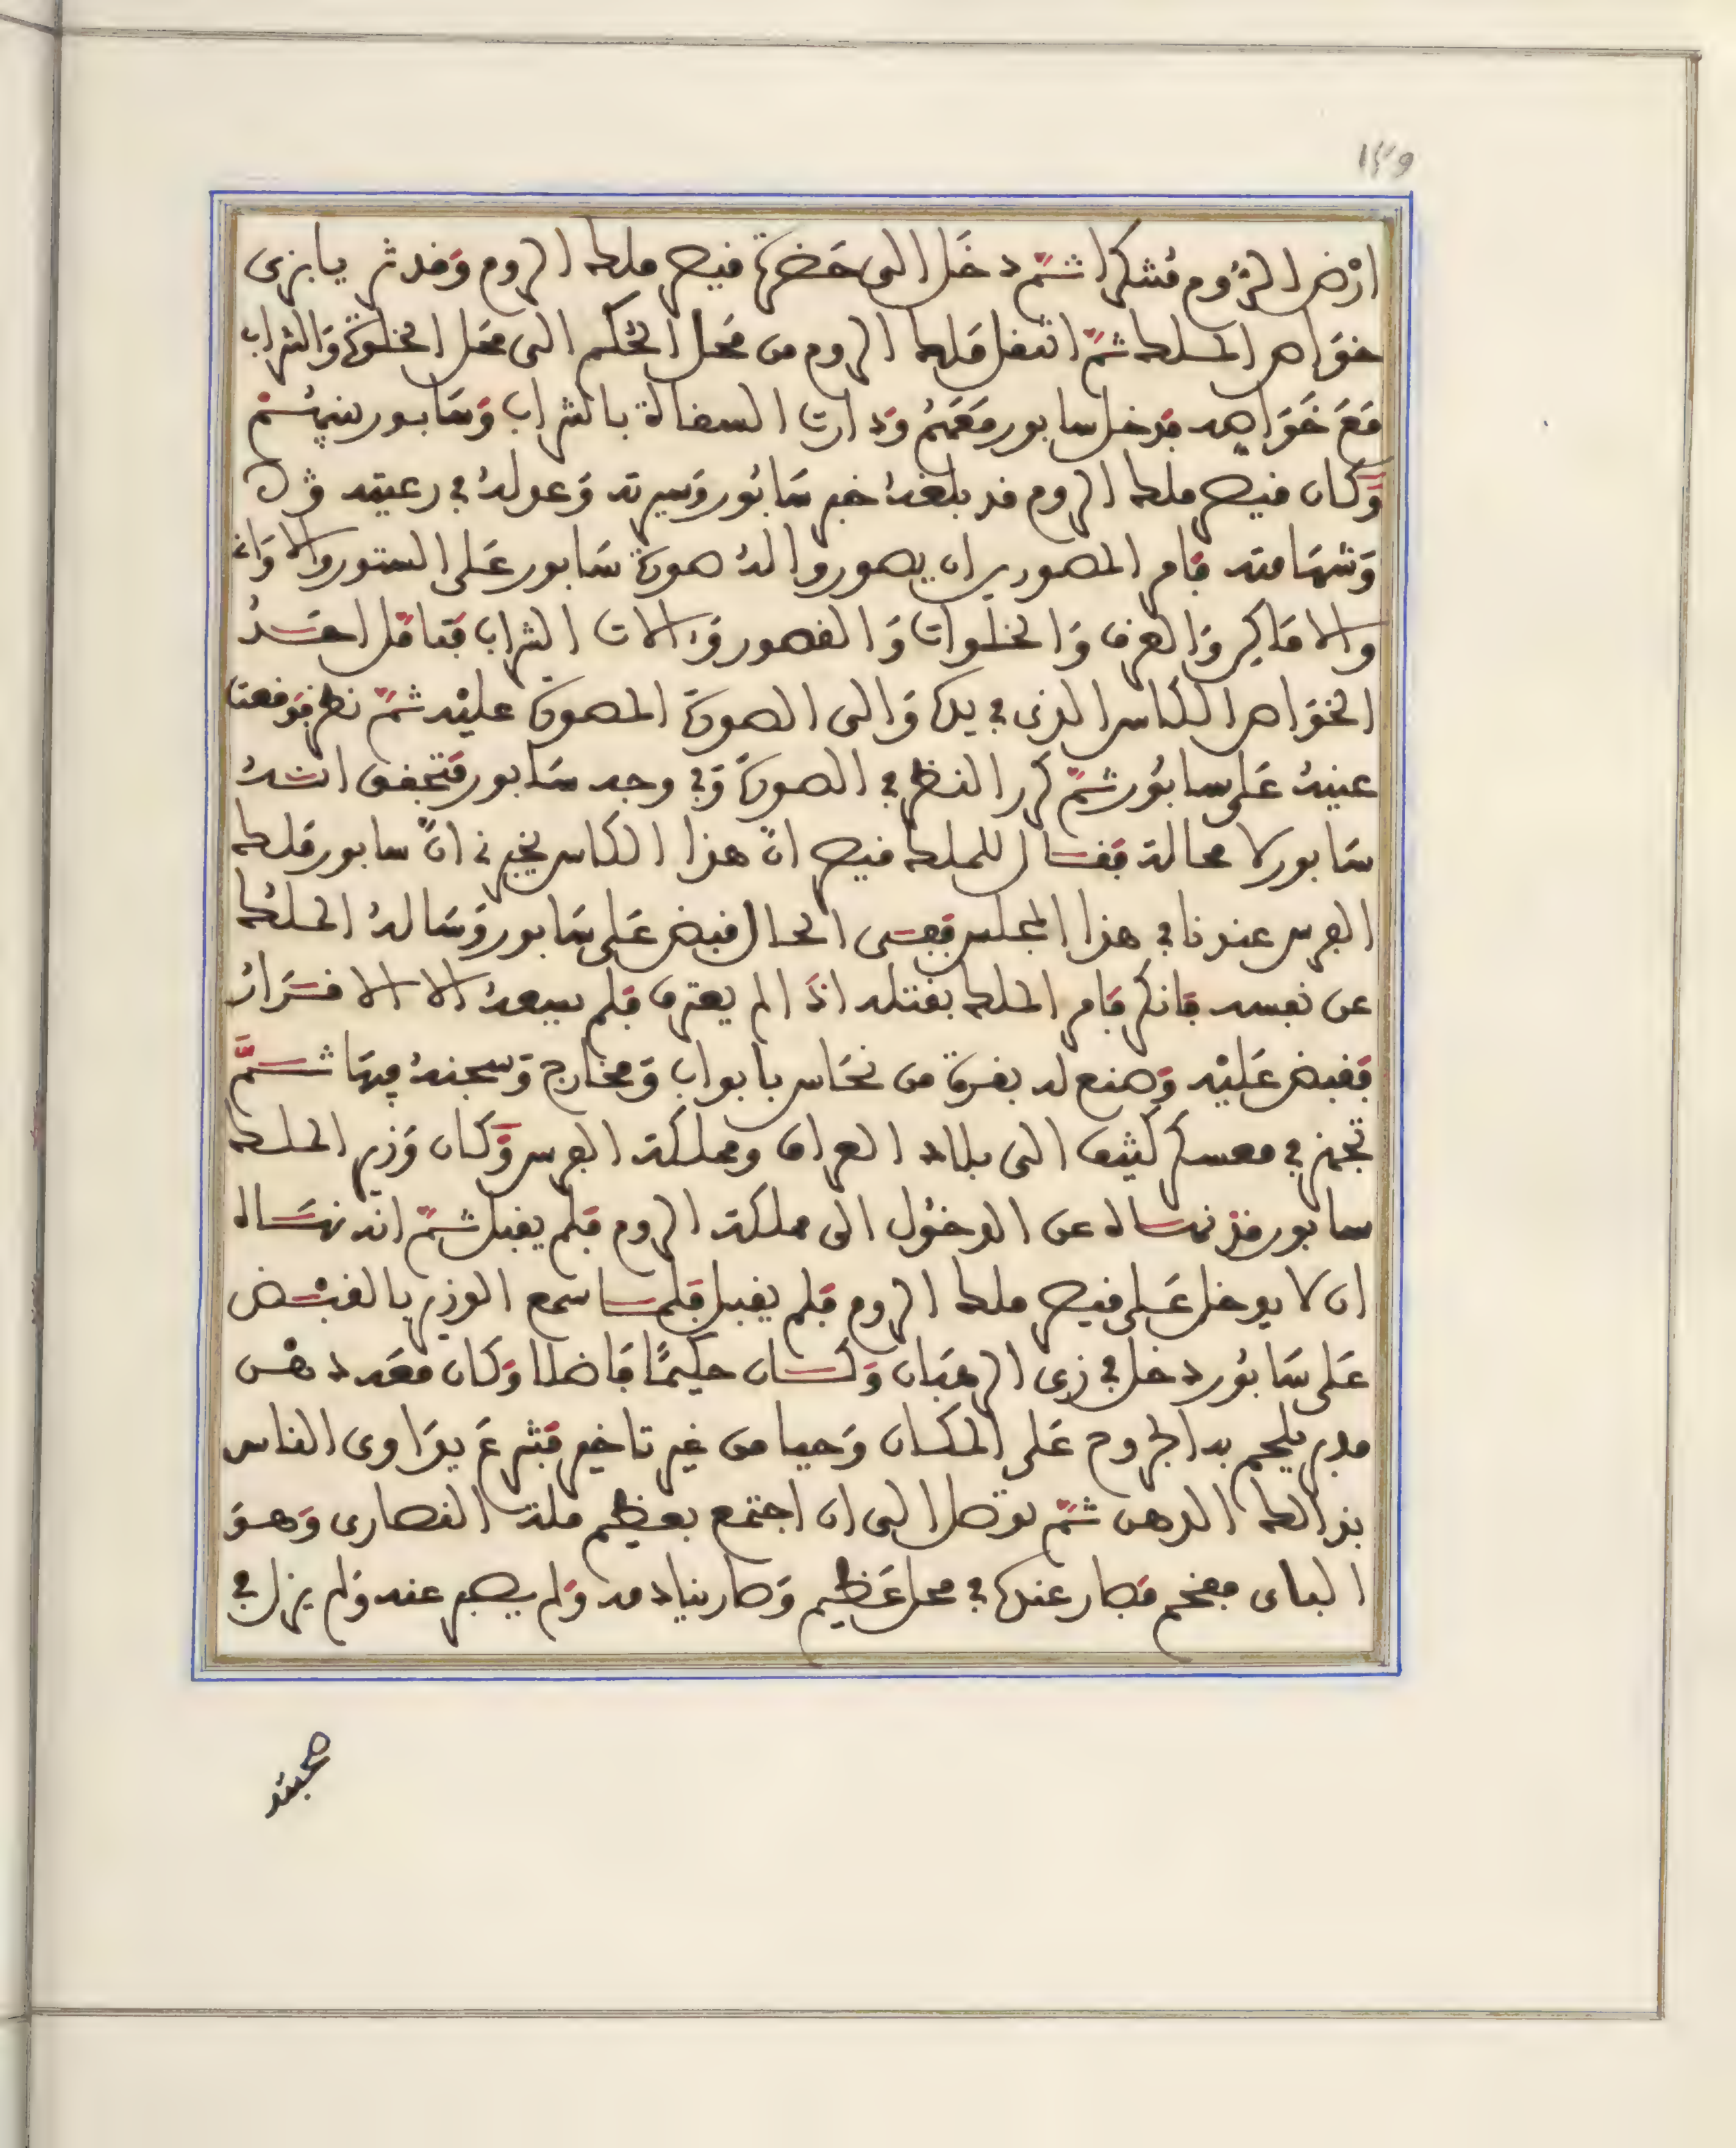 ١٣٩
ارض الروم متنكرا ثم دخل الى حضرة قيصر ملك الروم وقد تزيا بزي
خواص الملك ثم انتقل ملك الروم من محل الحكم الى محل الخلوة والشراب
مع خواصه فدخل سابور معهم ودارت السقاة بالشراب وسابور بينهم
وكان قيصر ملك الروم قد بلغه خبر سابور وسيرته وعدله في رعيته
وشهامته فامر المصورين ان يصوروا له صورة سابور على الستور والاوانى
والاماكن والغرف والخلوات والقصور والات الشراب فتامل احد
الخواص الكاس الذي في يده والى الصورة المصورة عليه ثم نظر فوقعت
عينه على سابور ثم كرر النظر في الصورة وفي وجه سابور فتحقق انه
سابور لا محالة فقال للملك قيصر ان هذا الكاس يخبرني ان سابور ملك
الفرس عندنا في هذا المجلس ففى الحال قبض على سابور وساله الملك
عن نفسه فانكر فامر الملك بقتله اذا لم يعترف فلم يسعه الا الاقرار
فقبض عليه وصنع له بقرة من نحاس بابواب ومخارج وسجنه فيها ثم
تجهز في معسكر كثيف الى بلاد العراق ومملكة الفرس وكان وزير الملك
سابور قد نهاه عن الدخول الى مملكة الروم فلم يقبل ثم انه نهاه
ان لا يدخل على قيصر ملك الروم فلم يقبل فلما سمع الوزير بالقبض
على سابور دخل في زي الرهبان وكان حكيما فاضلا وكان معه دهن
مدبر يلحم به الجروح على المكان وحيا من غير تاخير فشرع يداوى الناس
بذالك الدهن ثم توصل الى ان اجتمع بعظيم ملة النصارى وهو
الباى مفخم فصار عنده في محل عظيم وصار ينادمه ولم يصبر عنه ولم يزل في
صحبته